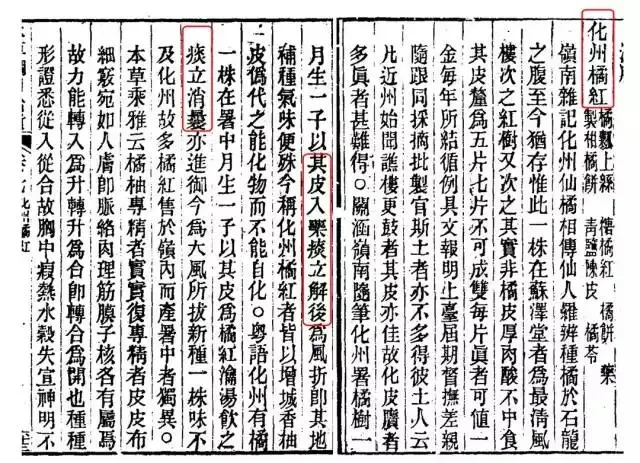 化州橘紅 橘瓤上絲 橘紅 橘餅 藥 製柑橘餅 青鹽陳皮 橘苓
嶺南雜記化州仙橘相傳仙人羅辨種橘於石龍
之腹至今猶存惟此一株在蘇澤堂者為最清風
樓次之紅樹又次之其實非橘皮厚肉酸不中食
其皮釐為五片七片不可成雙每片眞者可值一
金每年所結循例具文報明上臺屆期督撫差親
隨跟同採摘批製官斯土者亦不多得彼土人云
凡近州始聞譙樓更鼓者其皮亦佳故化皮贗者
多眞者甚難得○關涵嶺南隨筆化州署橘樹一
月生一子以其皮入藥痰立解後為風折即其地
補種氣味便殊今稱化州橘紅者皆以增城香柚
皮偽代之能化物而不能自化○粵語化州有橘
一株在署中月生一子以其皮為橘紅瀹湯飲之
痰立消曩亦進御今為大風所拔新種一株味不
及化州故多橘紅售於嶺內而產署中者獨異○
本草乘雅云橘柚專精者實實復專精者皮皮布
細竅宛如人膚即脈絡肉理筋膜子核各有屬焉
故力能轉入為升轉升為合即轉合為開也種種
形證悉從入從合故胸中瘕熱水穀失宣神明不